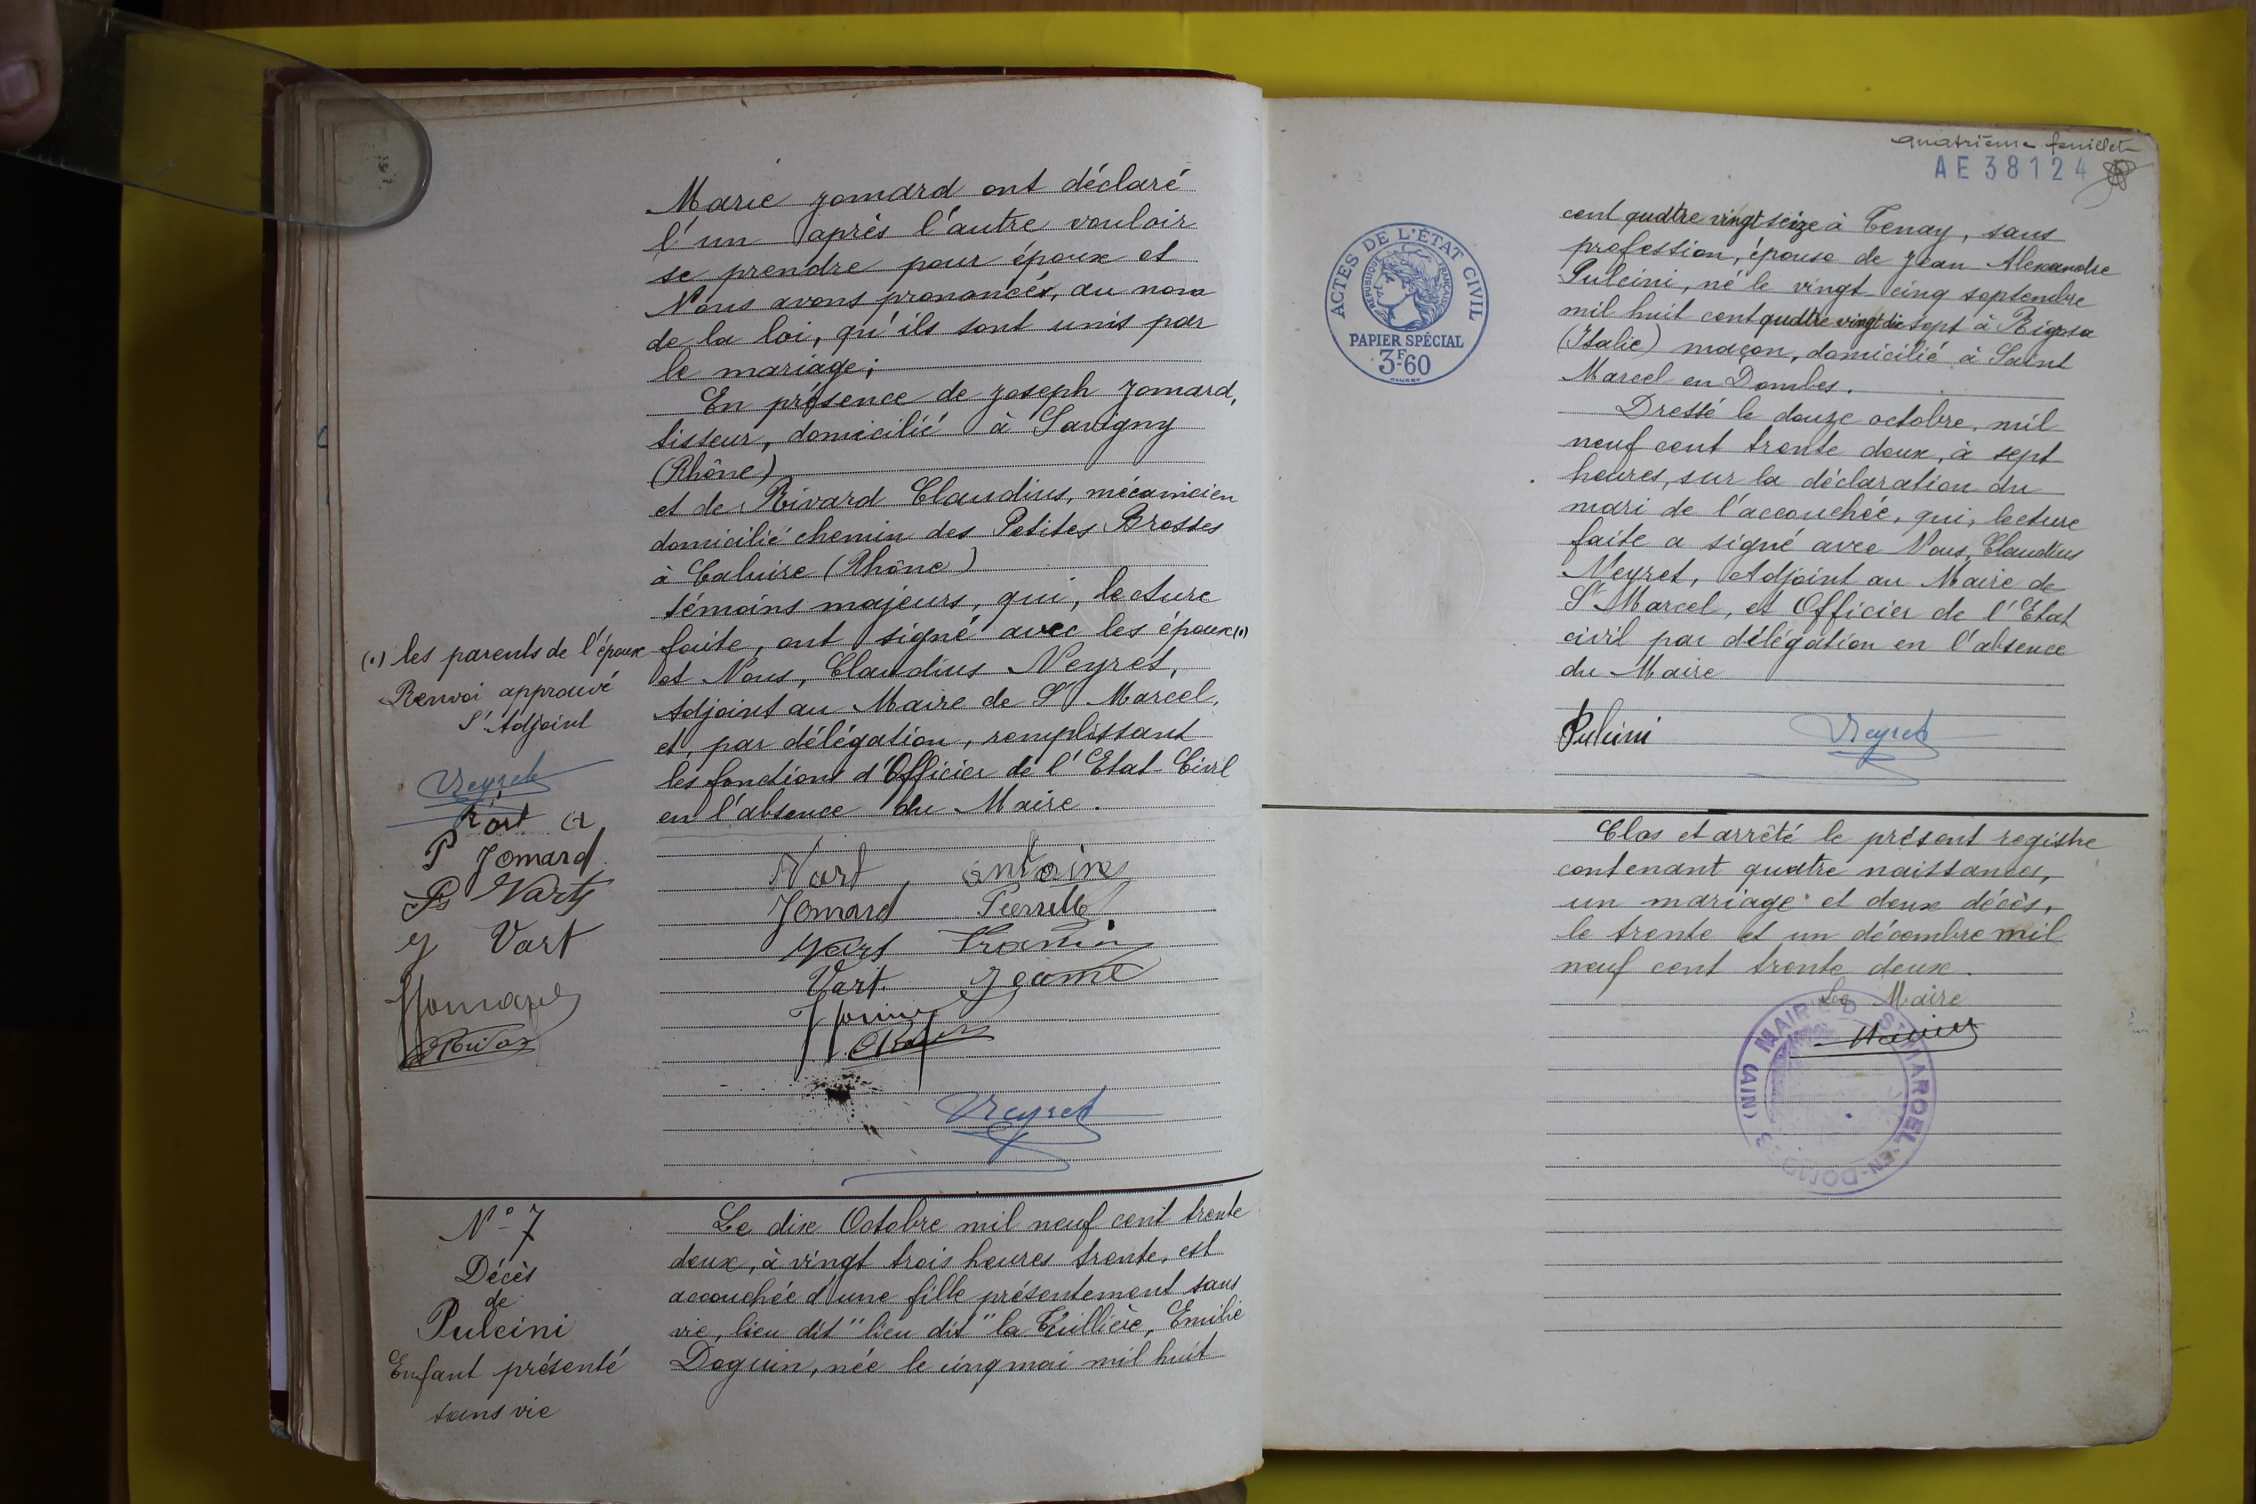 Marie Jomard ont déclaré
l'un après l'autre vouloir
se prendre pour époux et
Nous avons prononcés, au nom
de la loi, qu'ils sont unis par
le mariage;
En présence de Joseph Jomard,
tisseur, domicilié à Savigny
(Rhône)
et de Rivard Claudius, mécanicien
domicilié chemin des Petites Brosses
à Caluire (Rhône)
témoins majeurs, qui, lecture
faite, ont signé avec les époux (.)
et Nous, Claudius Neyret,
Adjoint au Maire de St Marcel,
et, par délégation, remplissant
les fonctions d'Officier de l'Etat-Civil
en l'absence du Maire.
(.) les parents de l'époux
Renvoi approuvé
l'Adjoint
Neyret
P Jomard
Vart
Jomard
Vart
Neyret
N° 7
Décès
de
Pulcini
Enfant présenté
sans vie
Le dix Octobre mil neuf cent trente
deux, à vingt trois heures trente, est
accouchée d'une fille présentement sans
vie, lieu dit "lieu dit" la Tuillière, Emilie
Doguin, née le cinq mai mil huit
quatrième feuillet
AE38124
ACTES DE L'ÉTAT CIVIL
RÉPUBLIQUE FRANÇAISE
PAPIER SPÉCIAL
3F60
cent quatre vingt seize à Tenay, sans
profession, épouse de Jean Alexandre
Pulcini, né le vingt cinq septembre
mil huit cent quatre vingt dix sept à Rigosa
(Italie) maçon, domicilié à Saint
Marcel en Dombes.
Dressé le douze octobre, mil
neuf cent trente deux, à sept
heures, sur la déclaration du
mari de l'accouchée, qui, lecture
faite a signé avec Nous, Claudius
Neyret, Adjoint au Maire de
St Marcel, et Officier de l'Etat
civil par délégation en l'absence
du Maire
Pulcini Neyret
Clos et arrêté le présent registre
contenant quatre naissances,
un mariage et deux décès,
le trente et un décembre mil
neuf cent trente deux.
Le Maire
MAIRIE D ST MARCEL-EN-DOMBES (AIN)